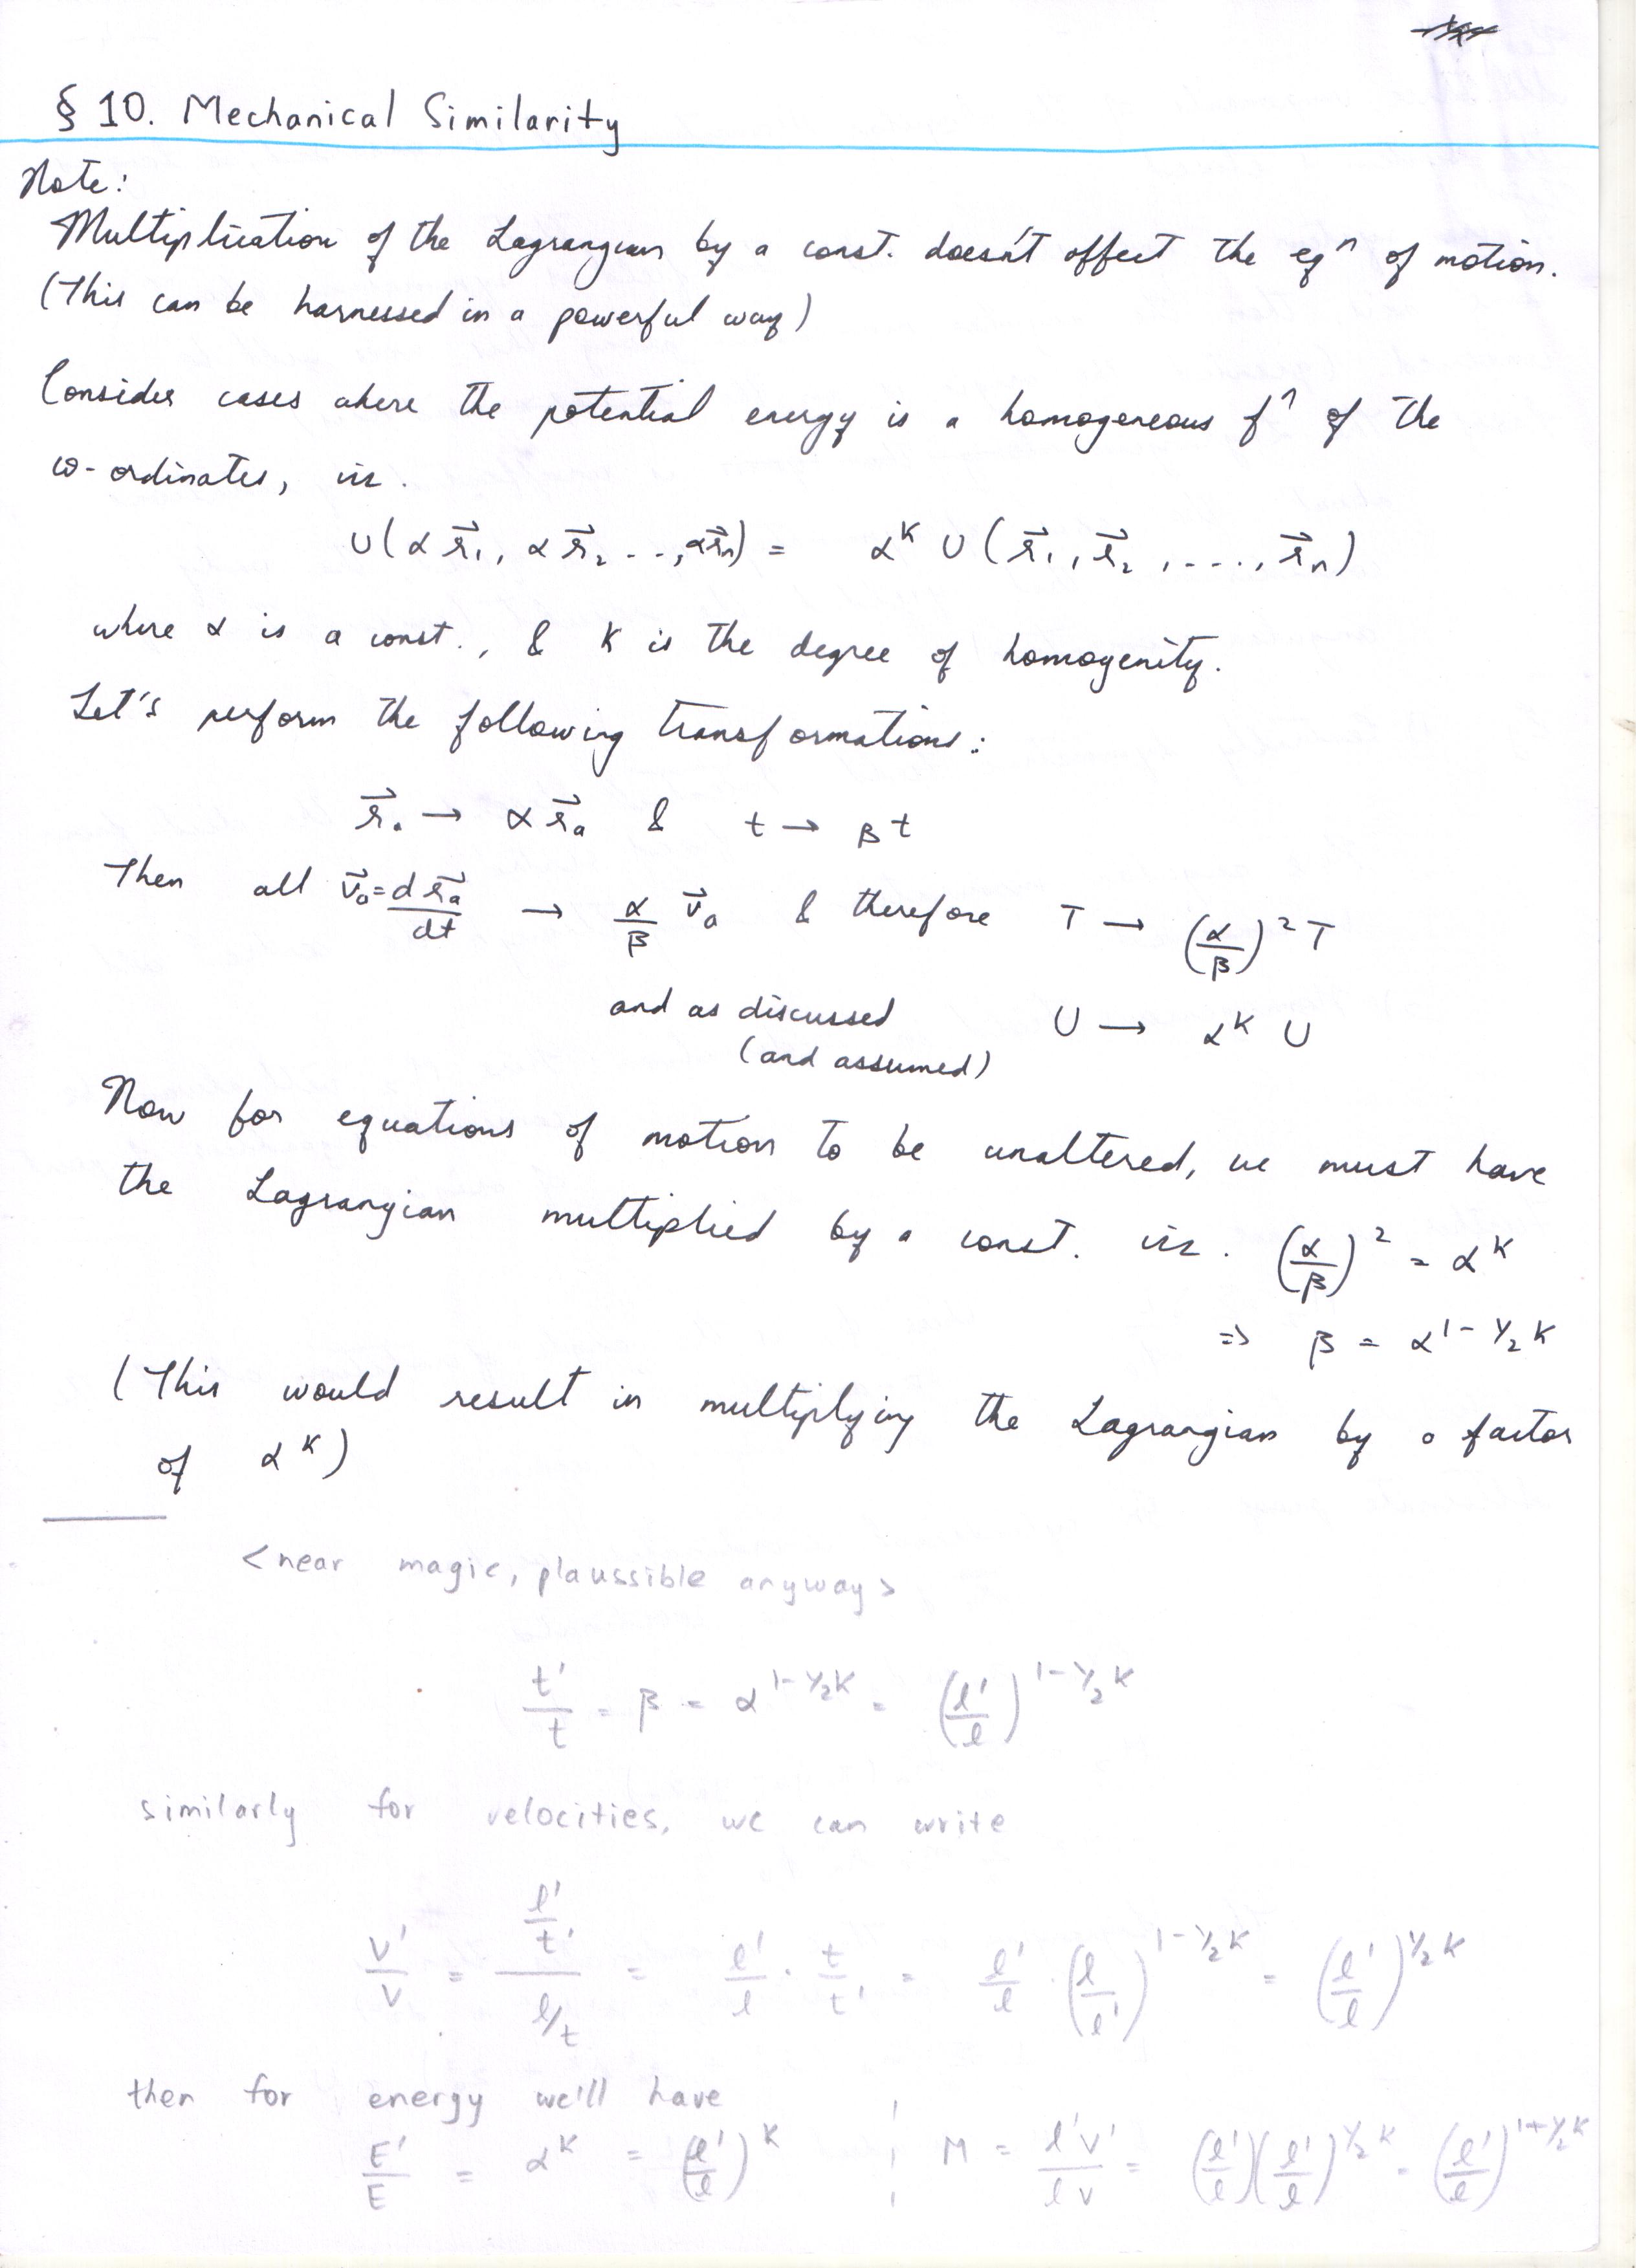 § 10. Mechanical Similarity
Note:
Multiplication of the Lagrangian by a const. doesn't affect the eqⁿ of motion.
(This can be harnessed in a powerful way)
Consider cases where the potential energy is a homogeneous fⁿ of the
co-ordinates, viz.
U(α r⃗₁, α r⃗₂ ..., α r⃗ₙ) = α^K U(r⃗₁, r⃗₂, ...., r⃗ₙ)
where α is a const., & K is the degree of homogenity.
Let's perform the following transformations:
r⃗ₐ → α r⃗ₐ & t → β t
Then all v⃗ₐ = d r⃗ₐ/dt → α/β v⃗ₐ & therefore T → (α/β)² T
and as discussed U → α^K U
(and assumed)
Now for equations of motion to be unaltered, we must have
the Lagrangian multiplied by a const. viz. (α/β)² = α^K
⇒ β = α^(1-1/2 K)
(This would result in multiplying the Lagrangian by a factor
of α^K)
<near magic, plaussible anyway>
t'/t = β = α^(1-1/2 K) = (l'/l)^(1-1/2 K)
similarly for velocities, we can write
v'/v = (l'/t')/(l/t) = l'/l · t/t' = l'/l · (l/l')^(1-1/2 K) = (l'/l)^(1/2 K)
then for energy we'll have
E'/E = α^K = (l'/l)^K ; M = l'v'/lv = (l'/l)(l'/l)^(1/2 K) = (l'/l)^(1+1/2 K)